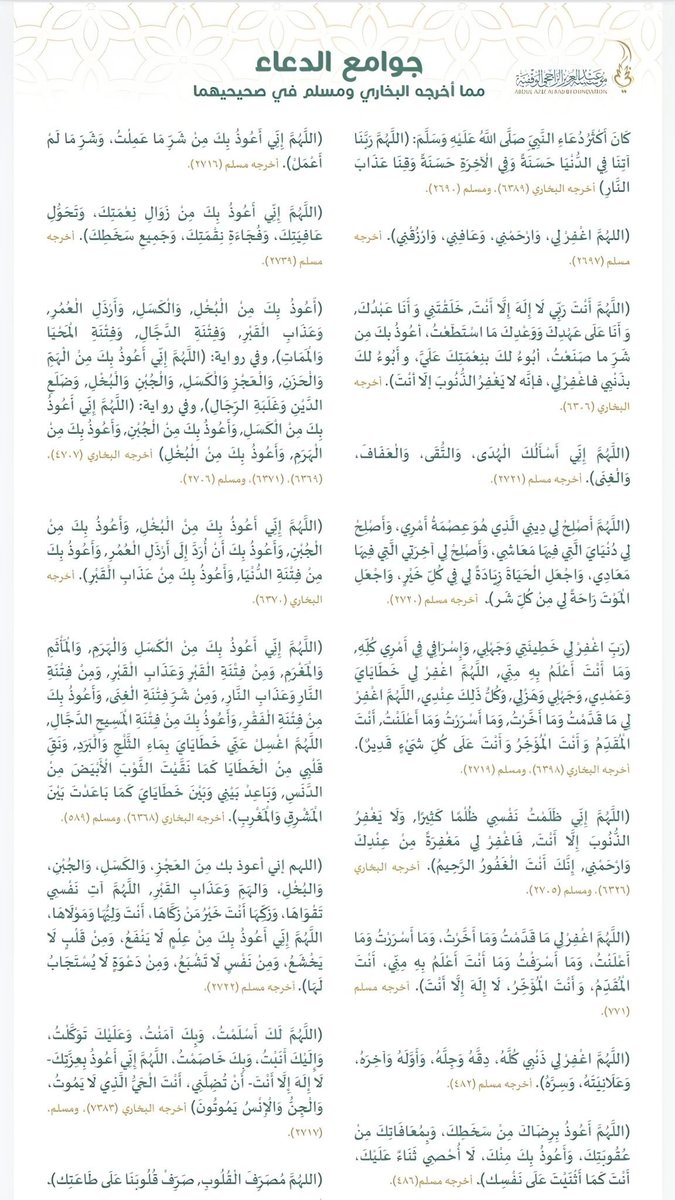 جوامع الدعاء
مما أخرجه البخاري ومسلم في صحيحيهما
مؤسسة عبدالعزيز الراجحي الوقفية
ABDUL AZIZ ALRAJHI FOUNDATION
كَانَ أَكْثَرُ دُعَاءِ النَّبِيِّ صَلَّى اللَّهُ عَلَيْهِ وَسَلَّمَ: (اللَّهُمَّ رَبَّنَا
آتِنَا فِي الدُّنْيَا حَسَنَةً وَفِي الْآخِرَةِ حَسَنَةً وَقِنَا عَذَابَ
النَّارِ) أخرجه البخاري (٦٣٨٩)، ومسلم (٢٦٩٠).
(اللهُمَّ اغْفِرْ لِي، وَارْحَمْنِي، وَعَافِنِي، وَارْزُقْنِي). أخرجه
مسلم (٢٦٩٧).
(اللَّهُمَّ أَنْتَ رَبِّي لَا إِلَهَ إِلَّا أَنْتَ، خَلَقْتَنِي وَأَنَا عَبْدُكَ,
وَأَنَا عَلَى عَهْدِكَ وَوَعْدِكَ مَا اسْتَطَعْتُ، أعُوذُ بكَ مِن
شَرِّ ما صَنَعْتُ، أبُوءُ لكَ بنِعْمَتِكَ عَلَيَّ، وَأَبُوءُ لكَ
بذَنْبِي فاغْفِرْ لِي، فإنَّه لا يَغْفِرُ الذُّنُوبَ إلَّا أنْتَ). أخرجه
البخاري (٦٣٠٦).
(اللَّهُمَّ إِنِّي أَسْأَلُكَ الْهُدَى، وَالتُّقَى، وَالْعَفَافَ،
وَالْغِنَى). أخرجه مسلم (٢٧٢١).
(اللَّهُمَّ أَصْلِحْ لِي دِينِي الَّذِي هُوَ عِصْمَةُ أَمْرِي، وَأَصْلِحْ
لِي دُنْيَايَ الَّتِي فِيهَا مَعَاشِي، وَأَصْلِحْ لِي آخِرَتِي الَّتِي فِيهَا
مَعَادِي، وَاجْعَلِ الْحَيَاةَ زِيَادَةً لِي فِي كُلِّ خَيْرٍ، وَاجْعَلِ
الْمَوْتَ رَاحَةً لِي مِنْ كُلِّ شَر). أخرجه مسلم (٢٧٢٠).
(رَبِّ اغْفِرْ لِي خَطِيئَتِي وَجَهْلِي, وَإِسْرَافِي فِي أَمْرِي كُلِّهِ,
وَمَا أَنْتَ أَعْلَمُ بِهِ مِنِّي, اللَّهُمَّ اغْفِرْ لِي خَطَايَايَ
وَعَمْدِي, وَجَهْلِي وَهَزْلِي, وَكُلُّ ذَلِكَ عِنْدِي, اللَّهُمَّ اغْفِرْ
لِي مَا قَدَّمْتُ وَمَا أَخَّرْتُ, وَمَا أَسْرَرْتُ وَمَا أَعْلَنْتُ, أَنْتَ
الْمُقَدِّمُ وَأَنْتَ الْمُؤَخِّرُ وَأَنْتَ عَلَى كُلِّ شَيْءٍ قَدِيرٌ).
أخرجه البخاري (٦٣٩٨)، ومسلم (٢٧١٩).
(اللَّهُمَّ إِنِّي ظَلَمْتُ نَفْسِي ظُلْمًا كَثِيرًا, وَلَا يَغْفِرُ
الذُّنُوبَ إِلَّا أَنْتَ, فَاغْفِرْ لِي مَغْفِرَةً مِنْ عِنْدِكَ
وَارْحَمْنِي, إِنَّكَ أَنْتَ الْغَفُورُ الرَّحِيمُ). أخرجه البخاري
(٦٣٢٦)، ومسلم (٢٧٠٥).
(اللَّهُمَّ اغْفِرْ لِي مَا قَدَّمْتُ وَمَا أَخَّرْتُ، وَمَا أَسْرَرْتُ وَمَا
أَعْلَنْتُ، وَمَا أَسْرَفْتُ وَمَا أَنْتَ أَعْلَمُ بِهِ مِنِّي، أَنْتَ
الْمُقَدِّمُ، وَأَنْتَ الْمُؤَخِّرُ، لَا إِلَهَ إِلَّا أَنْتَ). أخرجه مسلم
(٧٧١).
(اللَّهُمَّ اغْفِرْ لِي ذَنْبِي كُلَّهُ، دِقَّهُ وَجِلَّهُ، وَأَوَّلَهُ وَآخِرَهُ،
وَعَلَانِيَتَهُ، وَسِرَّهُ). أخرجه مسلم (٤٨٢).
(اللَّهُمَّ أَعُوذُ بِرِضَاكَ مِنْ سَخَطِكَ، وَبِمُعَافَاتِكَ مِنْ
عُقُوبَتِكَ، وَأَعُوذُ بِكَ مِنْكَ، لَا أُحْصِي ثَنَاءً عَلَيْكَ،
أَنْتَ كَمَا أَثْنَيْتَ عَلَى نَفْسِكَ). أخرجه مسلم(٤٨٦).
(اللَّهُمَّ إِنِّي أَعُوذُ بِكَ مِنْ شَرِّ مَا عَمِلْتُ، وَشَرِّ مَا لَمْ
أَعْمَلْ). أخرجه مسلم (٢٧١٦).
(اللَّهُمَّ إِنِّي أَعُوذُ بِكَ مِنْ زَوَالِ نِعْمَتِكَ، وَتَحَوُّلِ
عَافِيَتِكَ، وَفُجَاءَةِ نِقْمَتِكَ، وَجَمِيعِ سَخَطِكَ). أخرجه
مسلم (٢٧٣٩).
(أَعُوذُ بِكَ مِنْ الْبُخْلِ, وَالْكَسَلِ, وَأَرْذَلِ الْعُمُرِ,
وَعَذَابِ الْقَبْرِ, وَفِتْنَةِ الدَّجَّالِ, وَفِتْنَةِ الْمَحْيَا
وَالْمَمَاتِ)، وفي رواية: (اللَّهُمَّ إِنِّي أَعُوذُ بِكَ مِنْ الْهَمِّ
وَالْحَزَنِ, وَالْعَجْزِ وَالْكَسَلِ, وَالْجُبْنِ وَالْبُخْلِ, وَضَلَعِ
الدَّيْنِ وَغَلَبَةِ الرِّجَالِ), وفي رواية: (اللَّهُمَّ إِنِّي أَعُوذُ
بِكَ مِنْ الْكَسَلِ, وَأَعُوذُ بِكَ مِنْ الْجُبْنِ, وَأَعُوذُ بِكَ مِنْ
الْهَرَمِ, وَأَعُوذُ بِكَ مِنْ الْبُخْلِ) أخرجه البخاري (٤٧٠٧)،
(٦٣٦٩)، (٦٣٧١)، ومسلم (٢٧٠٦).
(اللَّهُمَّ إِنِّي أَعُوذُ بِكَ مِنْ الْبُخْلِ, وَأَعُوذُ بِكَ مِنْ
الْجُبْنِ, وَأَعُوذُ بِكَ أَنْ أُرَدَّ إِلَى أَرْذَلِ الْعُمُرِ, وَأَعُوذُ بِكَ
مِنْ فِتْنَةِ الدُّنْيَا, وَأَعُوذُ بِكَ مِنْ عَذَابِ الْقَبْرِ). أخرجه
البخاري (٦٣٧٠).
(اللَّهُمَّ إِنِّي أَعُوذُ بِكَ مِنْ الْكَسَلِ وَالْهَرَمِ, وَالْمَأْثَمِ
وَالْمَغْرَمِ, وَمِنْ فِتْنَةِ الْقَبْرِ وَعَذَابِ الْقَبْرِ, وَمِنْ فِتْنَةِ
النَّارِ وَعَذَابِ النَّارِ, وَمِنْ شَرِّ فِتْنَةِ الْغِنَى, وَأَعُوذُ بِكَ
مِنْ فِتْنَةِ الْفَقْرِ, وَأَعُوذُ بِكَ مِنْ فِتْنَةِ الْمَسِيحِ الدَّجَّالِ,
اللَّهُمَّ اغْسِلْ عَنِّي خَطَايَايَ بِمَاءِ الثَّلْجِ وَالْبَرَدِ, وَنَقِّ
قَلْبِي مِنْ الْخَطَايَا كَمَا نَقَّيْتَ الثَّوْبَ الْأَبْيَضَ مِنْ
الدَّنَسِ, وَبَاعِدْ بَيْنِي وَبَيْنَ خَطَايَايَ كَمَا بَاعَدْتَ بَيْنَ
الْمَشْرِقِ وَالْمَغْرِبِ). أخرجه البخاري (٦٣٦٨)، ومسلم (٥٨٩).
(اللهم إني أعوذ بك مِنَ العَجْزِ، وَالكَسَلِ، وَالجُبْنِ،
وَالبُخْلِ، وَالهَمِّ وَعَذَابِ القَبْرِ, اللَّهُمَّ آتِ نَفْسِي
تَقْوَاهَا، وَزَكِّهَا أَنْتَ خَيْرُ مَنْ زَكَّاهَا، أَنْتَ وَلِيُّهَا وَمَوْلَاهَا،
اللَّهُمَّ إِنِّي أَعُوذُ بِكَ مِنْ عِلْمٍ لَا يَنْفَعُ، وَمِنْ قَلْبٍ لَا
يَخْشَعُ، وَمِنْ نَفْسٍ لَا تَشْبَعُ، وَمِنْ دَعْوَةٍ لَا يُسْتَجَابُ
لَهَا). أخرجه مسلم (٢٧٢٢).
(اللَّهُمَّ لَكَ أَسْلَمْتُ، وَبِكَ آمَنْتُ، وَعَلَيْكَ تَوَكَّلْتُ،
وَإِلَيْكَ أَنَبْتُ، وَبِكَ خَاصَمْتُ، اللَّهُمَّ إِنِّي أَعُوذُ بِعِزَّتِكَ-
لَا إِلَهَ إِلَّا أَنْتَ- أَنْ تُضِلَّنِي، أَنْتَ الْحَيُّ الَّذِي لَا يَمُوتُ،
وَالْجِنُّ وَالْإِنْسُ يَمُوتُونَ) أخرجه البخاري (٧٣٨٣)، ومسلم.
(٢٧١٧)
(اللهُمَّ مُصَرِّفَ الْقُلُوبِ, صَرِّفْ قُلُوبَنَا عَلَى طَاعَتِكَ).